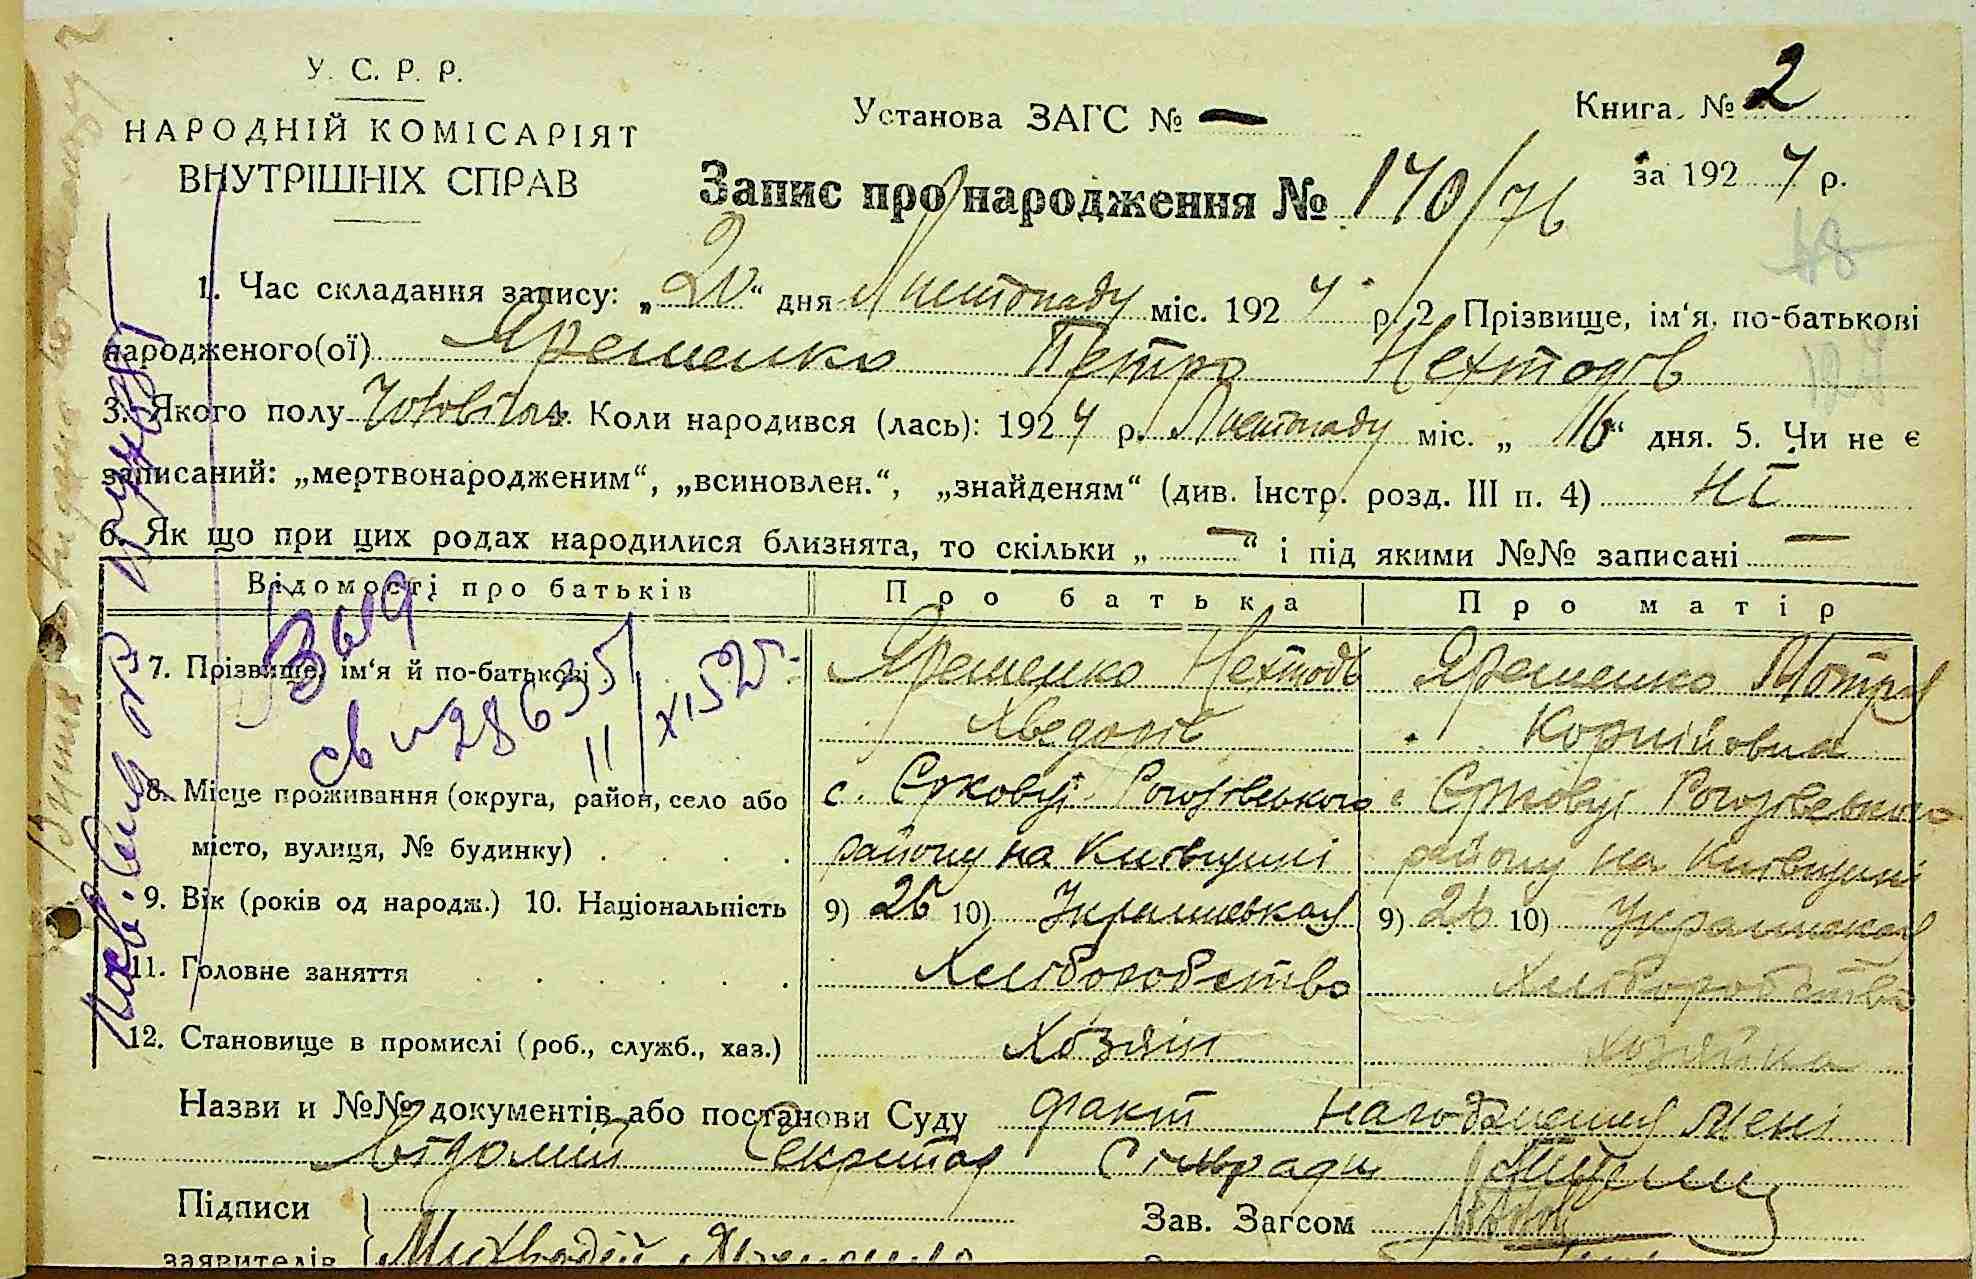 У. С. Р. Р.
НАРОДНІЙ КОМІСАРІЯТ
ВНУТРІШНІХ СПРАВ
Установа ЗАГС № —
Книга № 2
за 1927 р.
Запис про народження № 170/76
48
1. Час складання запису: „20“ дня Листопаду міс. 1927 р. 2. Прізвище, ім‘я, по-батькові
народженого(ої) Ярешенко Петро Нехтодів
3. Якого полу Чоловічого 4. Коли народився (лась): 1927 р. Листопаду міс. „16“ дня. 5. Чи не є
записаний: „мертвонародженим“, „всиновлен.“, „знайденям“ (див. Інстр. розд. III п. 4) НІ
6. Як що при цих родах народилися близнята, то скільки „—“ і під якими №№ записані —
Відомості про батьків Про батька Про матір
7. Прізвище, ім‘я й по-батькові Ярешенко Нехтодь Ярешенко Мотря
Хведорів Корнійовна
8. Місце проживання (округа, район, село або с. Срковці Рогозівського с. Срковці Рогозівського
місто, вулиця, № будинку) району на Київщині району на Київщині
9. Вік (років од народж.) 10. Національність 9) 26 10) Українська 9) 26 10) Українська
11. Головне заняття Хліборобство Хліборобство
12. Становище в промислі (роб., служб., хаз.) Хозяін хозяйка
Назви и №№ документів або постанови Суду факт народження мені
Відомий Секретар Сільради
Підписи
заявителів
Зав. Загсом
28635
11/XI 52 г.